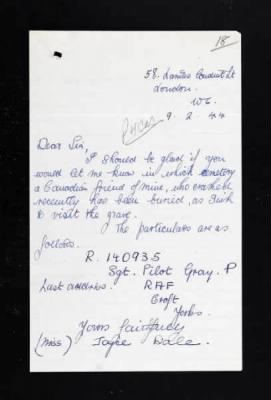 18
58. Lambs Conduit St
London.
W.C.
9. 2. 44
Dear Sir,
I should be glad if you
would let me know in which cemetery
a Canadian friend of mine, who crashed
recently has been buried, as I wish
to visit the grave.
The particulars are as
follows.
R. 140935
Sgt. Pilot Gray. P
Last address. RAF
Croft
Yorks.
Yours faithfully
(Miss) Joyce Dale.